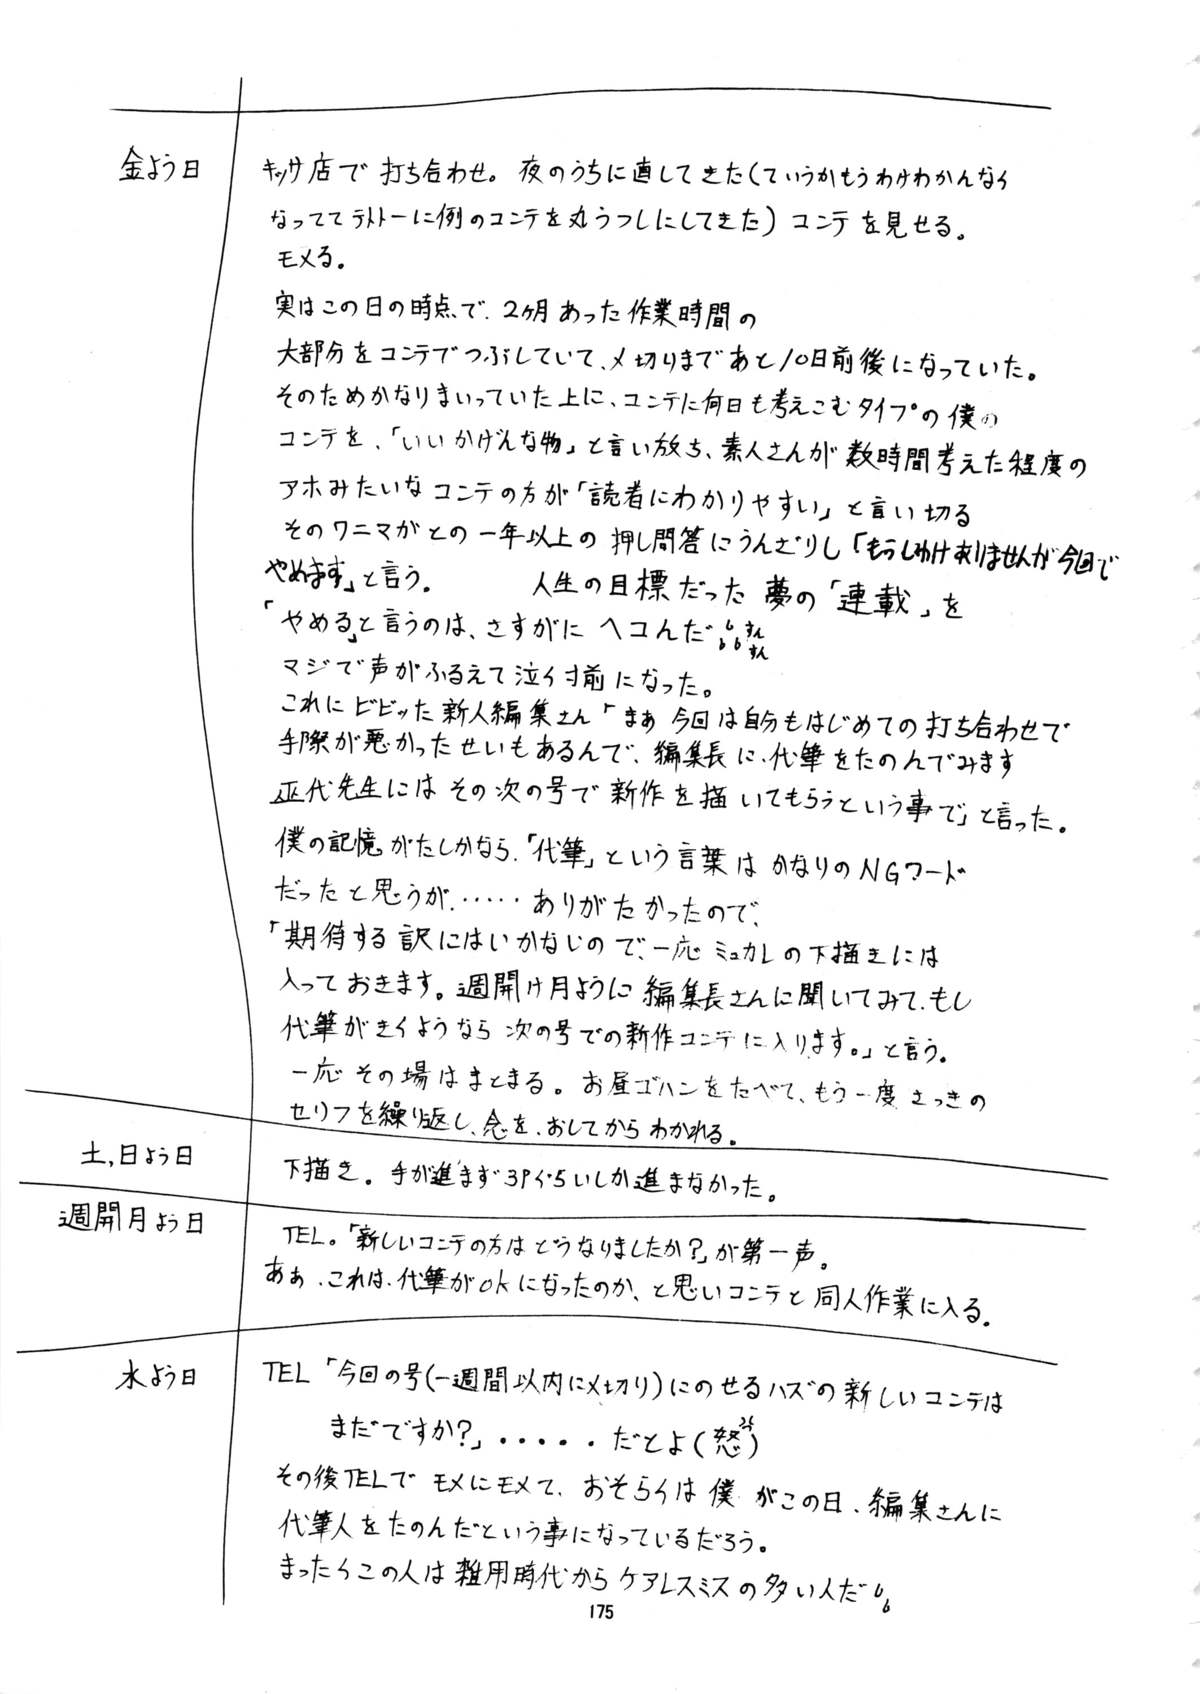 金よう日
キッサ店で打ち合わせ。夜のうちに直してきた(ていうかもうわけわかんなく
なっててテキトーに例のコンテを丸うつしにしてきた)コンテを見せる。
モメる。
実はこの日の時点で、2ヶ月あった作業時間の
大部分をコンテでつぶしていて、〆切りまであと10日前後になっていた。
そのためかなりまいっていた上に、コンテに何日も考えこむタイプの僕の
コンテを、「いいかげんな物」と言い放ち、素人さんが数時間考えた程度の
アホみたいなコンテの方が「読者にわかりやすい」と言い切る
そのワニマガとの一年以上の押し問答にうんざりし「もうしわけありませんが今回で
やめます」と言う。 人生の目標だった夢の「連載」を
「やめる」と言うのは、さすがにヘコんだ
マジで声がふるえて泣く寸前になった。
これにビビッた新人編集さん「まぁ今回は自分もはじめての打ち合わせで
手際が悪かったせいもあるんで、編集長に、代筆をたのんでみます
代先生にはその次の号で新作を描いてもらうという事で」と言った。
僕の記憶がたしかなら、「代筆」という言葉はかなりのNGワード
だったと思うが、・・・・・ありがたかったので、
「期待する訳にはいかないので、一応ミュカレの下描きには
入っておきます。週開け月ように編集長さんに聞いてみて、もし
代筆がきくようなら次の号での新作コンテに入ります。」と言う。
一応その場はまとまる。お昼ゴハンをたべて、もう一度さっきの
セリフを繰り返し、念を、おしてからわかれる。
土,日よう日
下描き。手が進まず3Pぐらいしか進まなかった。
週開月よう日
TEL。「新しいコンテの方はどうなりましたか?」が第一声。
ああ、これは、代筆がokになったのか、と思いコンテと同人作業に入る。
水よう日
TEL「今回の号(一週間以内に〆切り)にのせるハズの新しいコンテは
まだですか?」・・・・・だとよ(怒)
その後TELでモメにモメて、おそらくは僕がこの日、編集さんに
代筆人をたのんだという事になっているだろう。
まったくこの人は雑用時代からケアレスミスの多い人だ
175